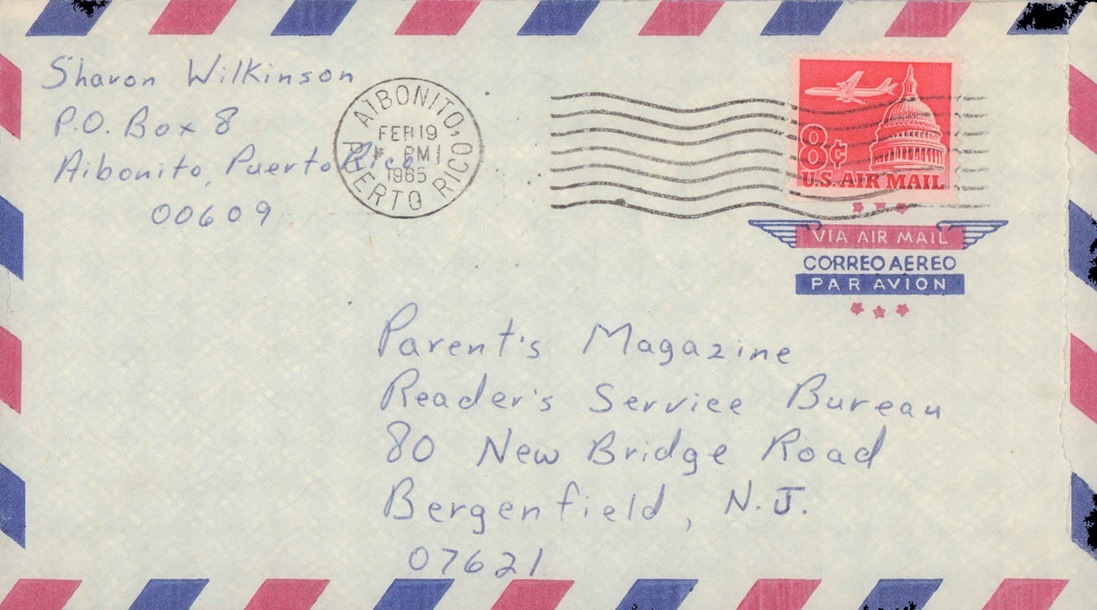 Sharon Wilkinson
P.O. Box 8
Aibonito, Puerto Rico
00609
AIBONITO,
FEB 19
PM
1965
PUERTO RICO
8¢
U.S. AIR MAIL
VIA AIR MAIL
CORREO AEREO
PAR AVION
Parent's Magazine
Reader's Service Bureau
80 New Bridge Road
Bergenfield, N.J.
07621